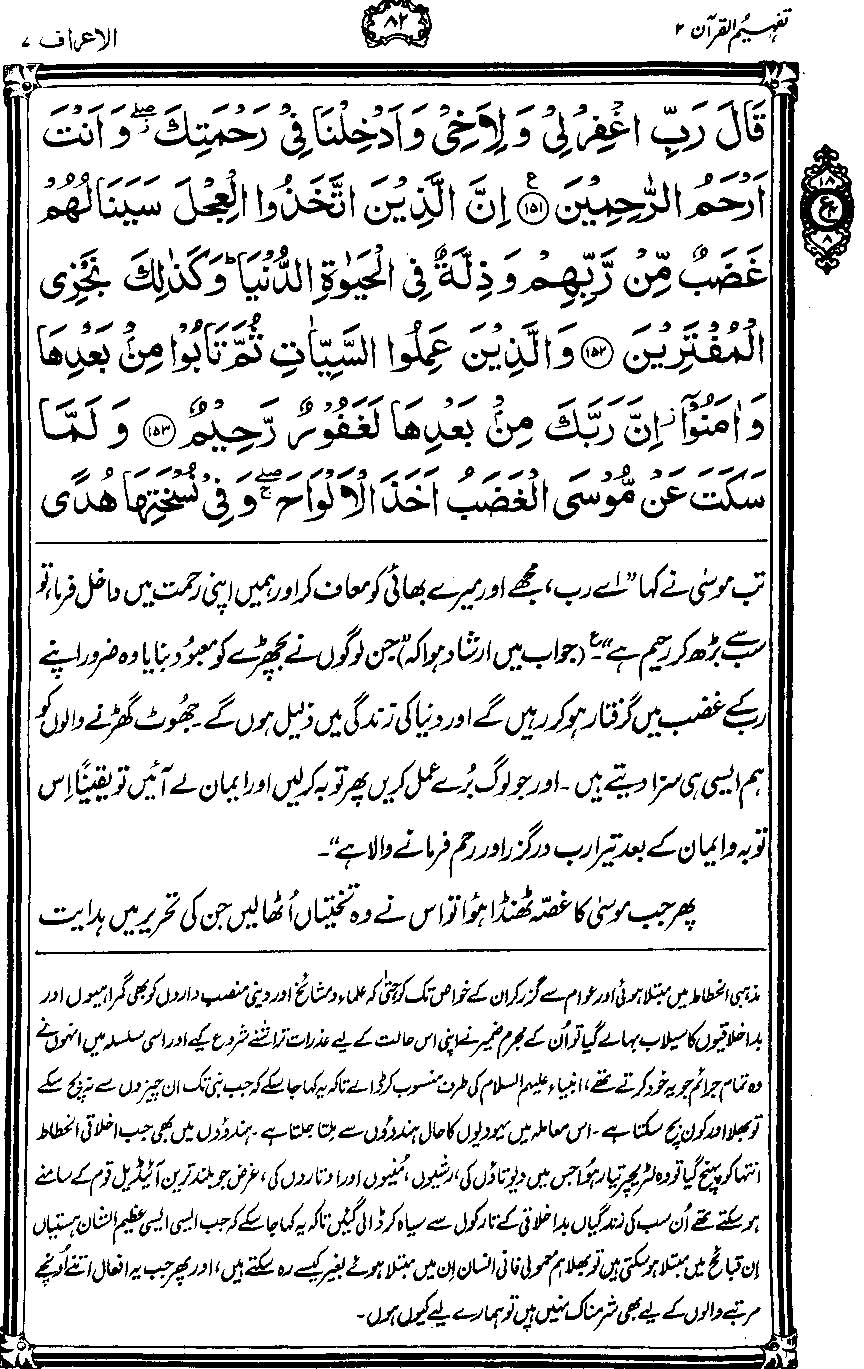 تفہیم القرآن ۲
۸۲
الاعراف ۷
قَالَ رَبِّ اغْفِرْ لِيْ وَ لِاَخِيْ وَ اَدْخِلْنَا فِيْ رَحْمَتِكَ ۖ وَ اَنْتَ
اَرْحَمُ الرّٰحِمِيْنَ ﴿۱۵۱﴾ اِنَّ الَّذِيْنَ اتَّخَذُوا الْعِجْلَ سَيَنَالُهُمْ
غَضَبٌ مِّنْ رَّبِّهِمْ وَ ذِلَّةٌ فِي الْحَيٰوةِ الدُّنْيَا ؕ وَ كَذٰلِكَ نَجْزِي
الْمُفْتَرِيْنَ ﴿۱۵۲﴾ وَالَّذِيْنَ عَمِلُوا السَّيِّاٰتِ ثُمَّ تَابُوْا مِنْۢ بَعْدِهَا
وَ اٰمَنُوْۤا ؗ اِنَّ رَبَّكَ مِنْۢ بَعْدِهَا لَغَفُوْرٌ رَّحِيْمٌ ﴿۱۵۳﴾ وَ لَمَّا
سَكَتَ عَنْ مُّوْسَى الْغَضَبُ اَخَذَ الْاَلْوَاحَ ۖ وَ فِيْ نُسْخَتِهَا هُدًى
۱۸
ع
۸
تب موسیٰ نے کہا ”اے رب، مجھے اور میرے بھائی کو معاف کر اور ہمیں اپنی رحمت میں داخل فرما، تو
سب سے بڑھ کر رحیم ہے“۔ ع (جواب میں ارشاد ہوا کہ) ”جن لوگوں نے بچھڑے کو معبود بنایا وہ ضرور اپنے
رب کے غضب میں گرفتار ہو کر رہیں گے اور دنیا کی زندگی میں ذلیل ہوں گے۔ جھوٹ گھڑنے والوں کو
ہم ایسی ہی سزا دیتے ہیں۔ اور جو لوگ بُرے عمل کریں پھر توبہ کر لیں اور ایمان لے آئیں تو یقیناً اِس
توبہ و ایمان کے بعد تیرا رب درگزر اور رحم فرمانے والا ہے“۔
پھر جب موسیٰ کا غصّہ ٹھنڈا ہوٴا تو اس نے وہ تختیاں اُٹھا لیں جن کی تحریر میں ہدایت
مذہبی انحطاط میں مبتلا ہوئی اور عوام سے گزر کر ان کے خواص تک کو حتیٰ کہ علماء و مشائخ اور دینی منصب داروں کو بھی گمراہیوں اور
بد اخلاقیوں کا سیلاب بہا لے گیا تو اُن کے مجرم ضمیر نے اپنی اس حالت کے لیے عذرات تراشنے شروع کیے اور اسی سلسلہ میں انہوں نے
وہ تمام جرائم جو یہ خود کرتے تھے، انبیاء علیہم السلام کی طرف منسوب کر ڈالے تاکہ یہ کہا جا سکے کہ جب نبی تک ان چیزوں سے نہ بچ سکے
تو بھلا اور کون بچ سکتا ہے۔ اس معاملہ میں یہودیوں کا حال ہندوؤں سے ملتا جلتا ہے۔ ہندوؤں میں بھی جب اخلاقی انحطاط
انتہا کو پہنچ گیا تو وہ لٹریچر تیار ہوٴا جس میں دیوتاؤں کی، رشیوں، مُنیوں اور اوتاروں کی، غرض جو بلند ترین آئیڈیل قوم کے سامنے
ہو سکتے تھے اُن سب کی زندگیاں بد اخلاقی کے تارکول سے سیاہ کر ڈالی گئیں تاکہ یہ کہا جا سکے کہ جب ایسی ایسی عظیم الشان ہستیاں
اِن قبائح میں مبتلا ہو سکتی ہیں تو بھلا ہم معمولی فانی انسان اِن میں مبتلا ہوئے بغیر کیسے رہ سکتے ہیں، اور پھر جب یہ افعال اتنے اُونچے
مرتبے والوں کے لیے بھی شرمناک نہیں ہیں تو ہمارے لیے کیوں ہوں۔